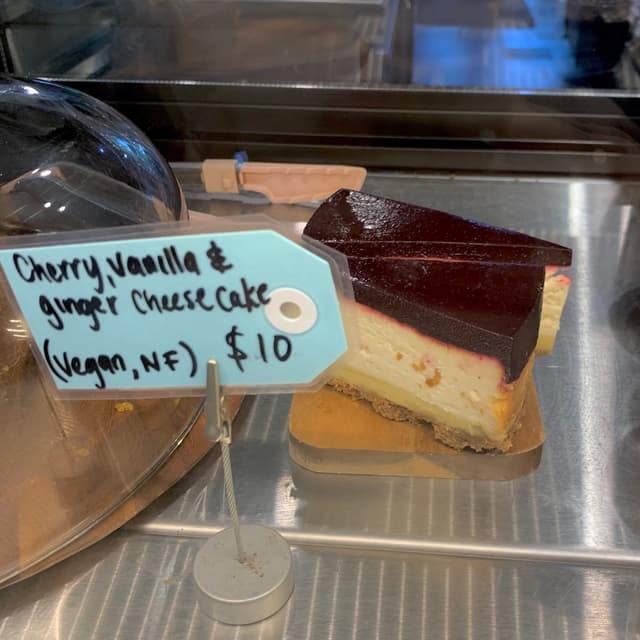 Cherry, Vanilla &
ginger Cheese Cake
(Vegan, NF) $10